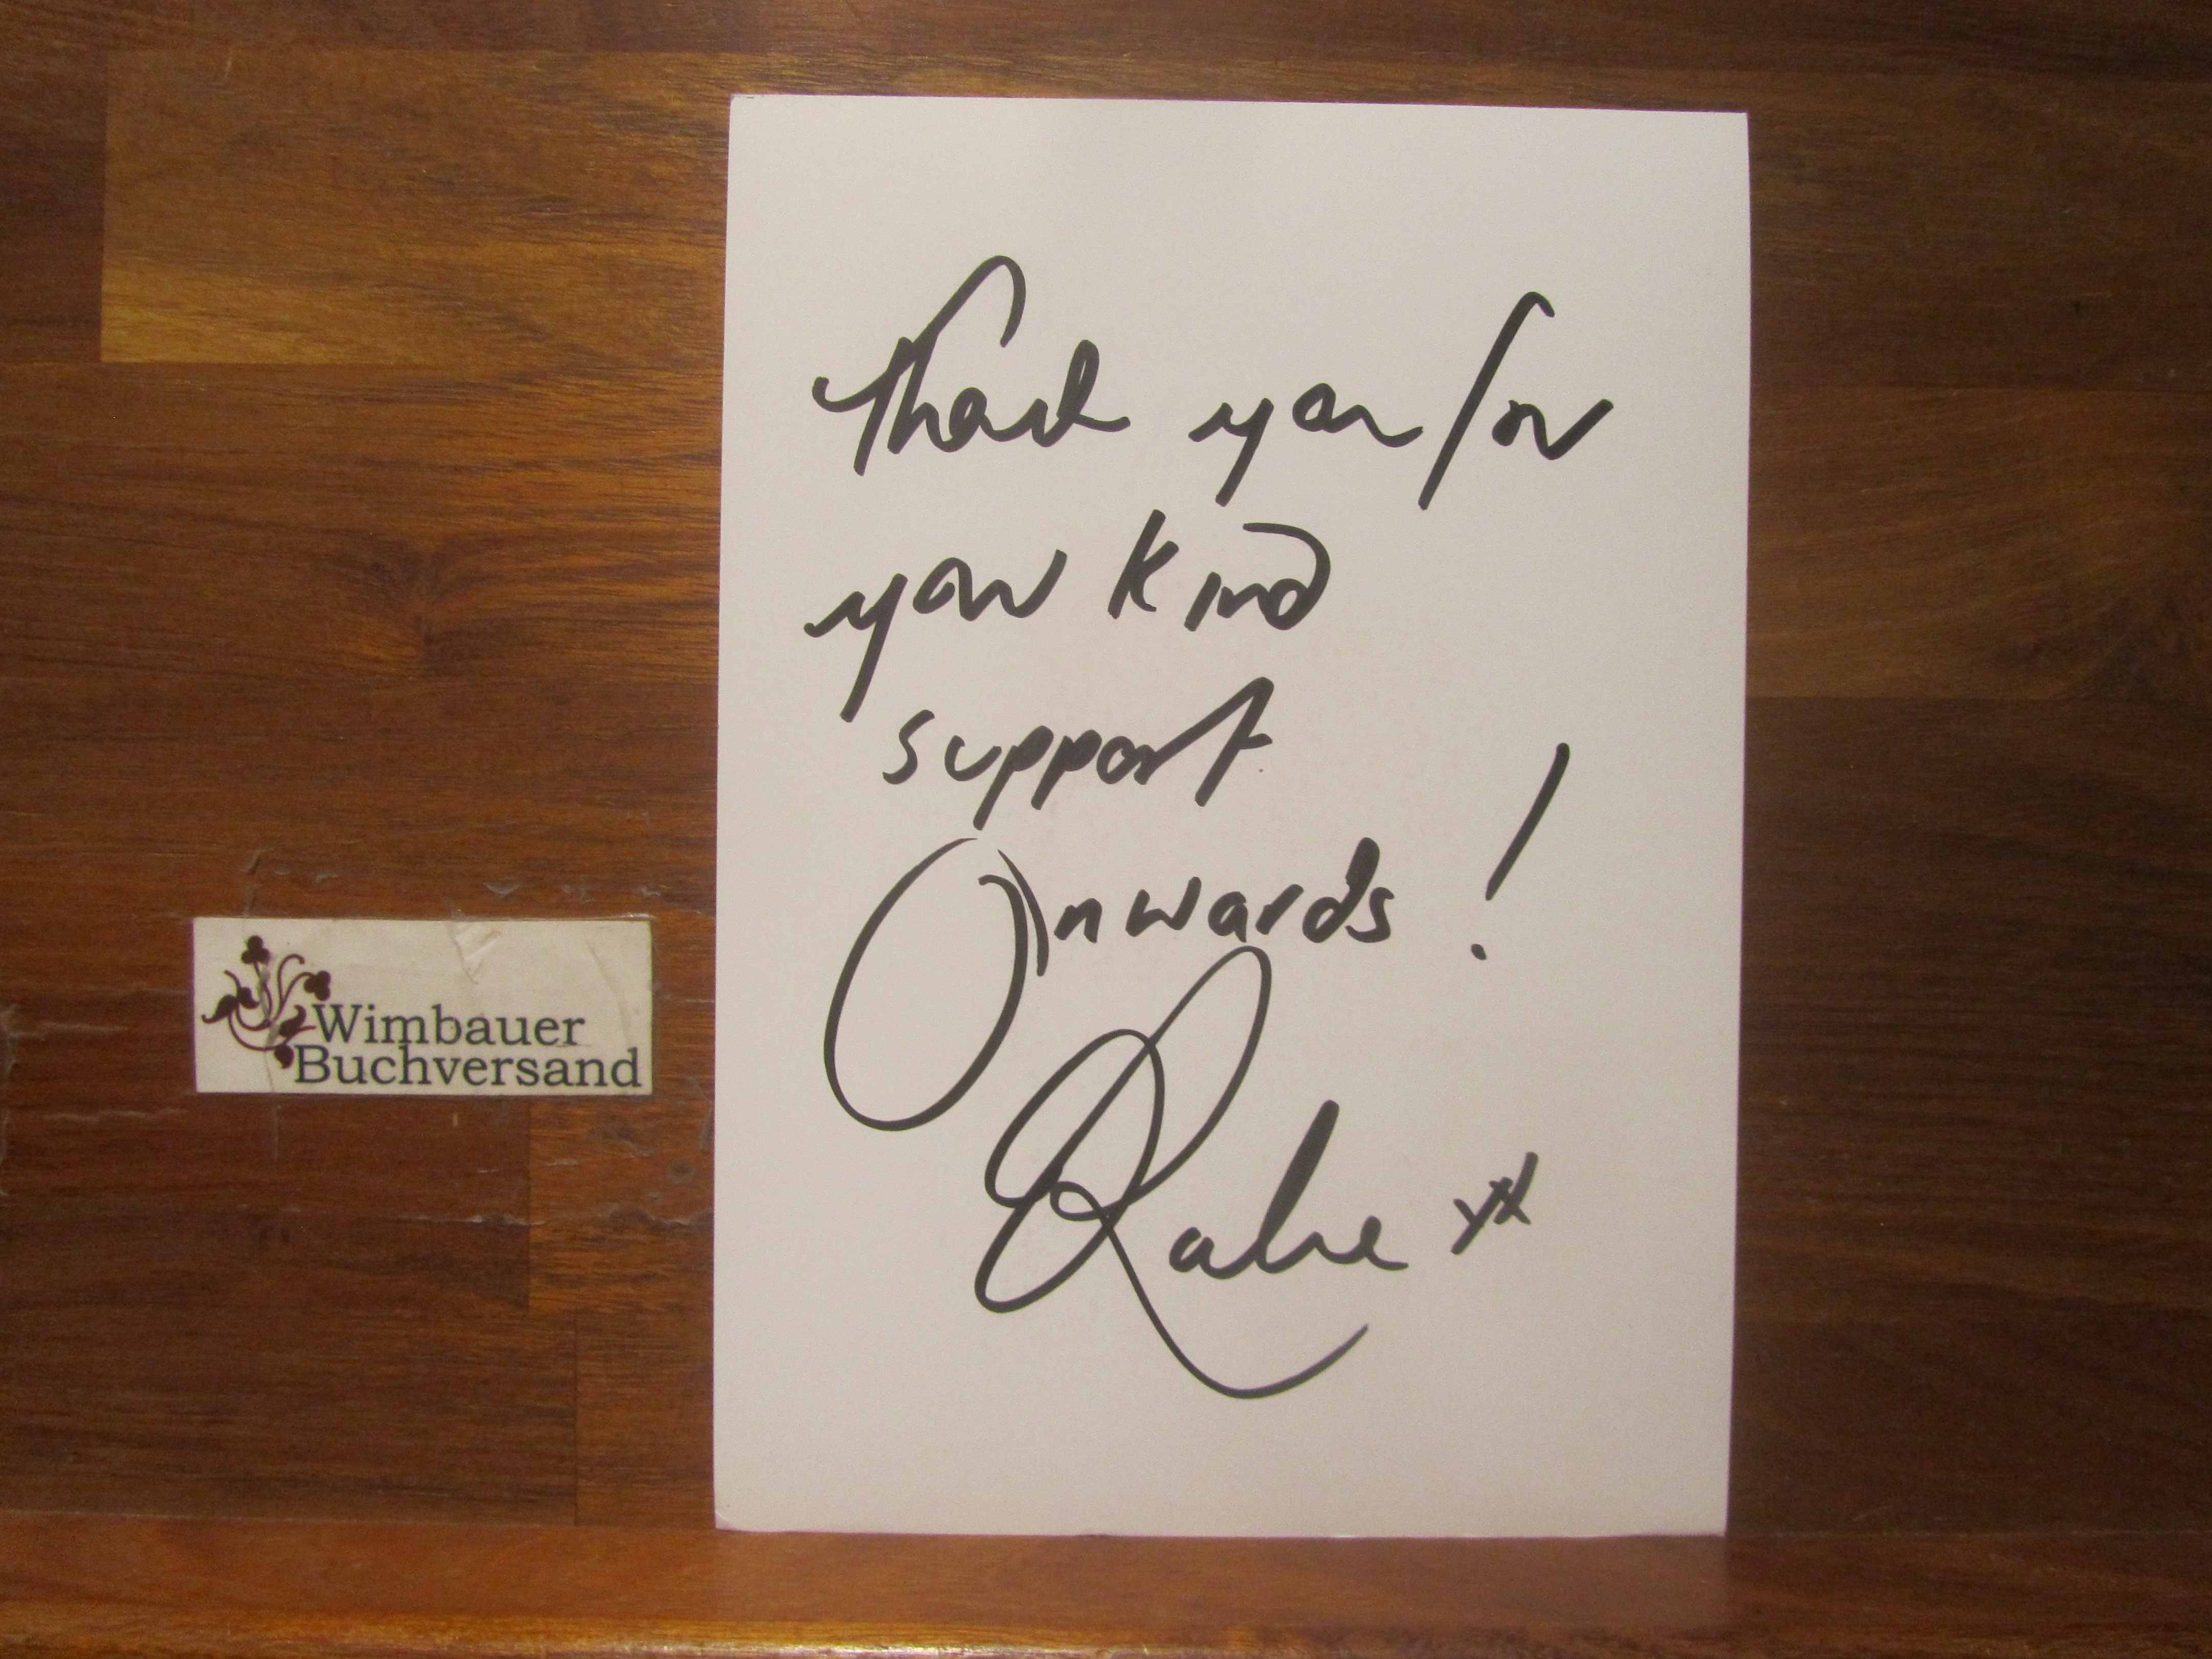 Thank you for
your kind
support
Onwards!
xx
Wimbauer
Buchversand